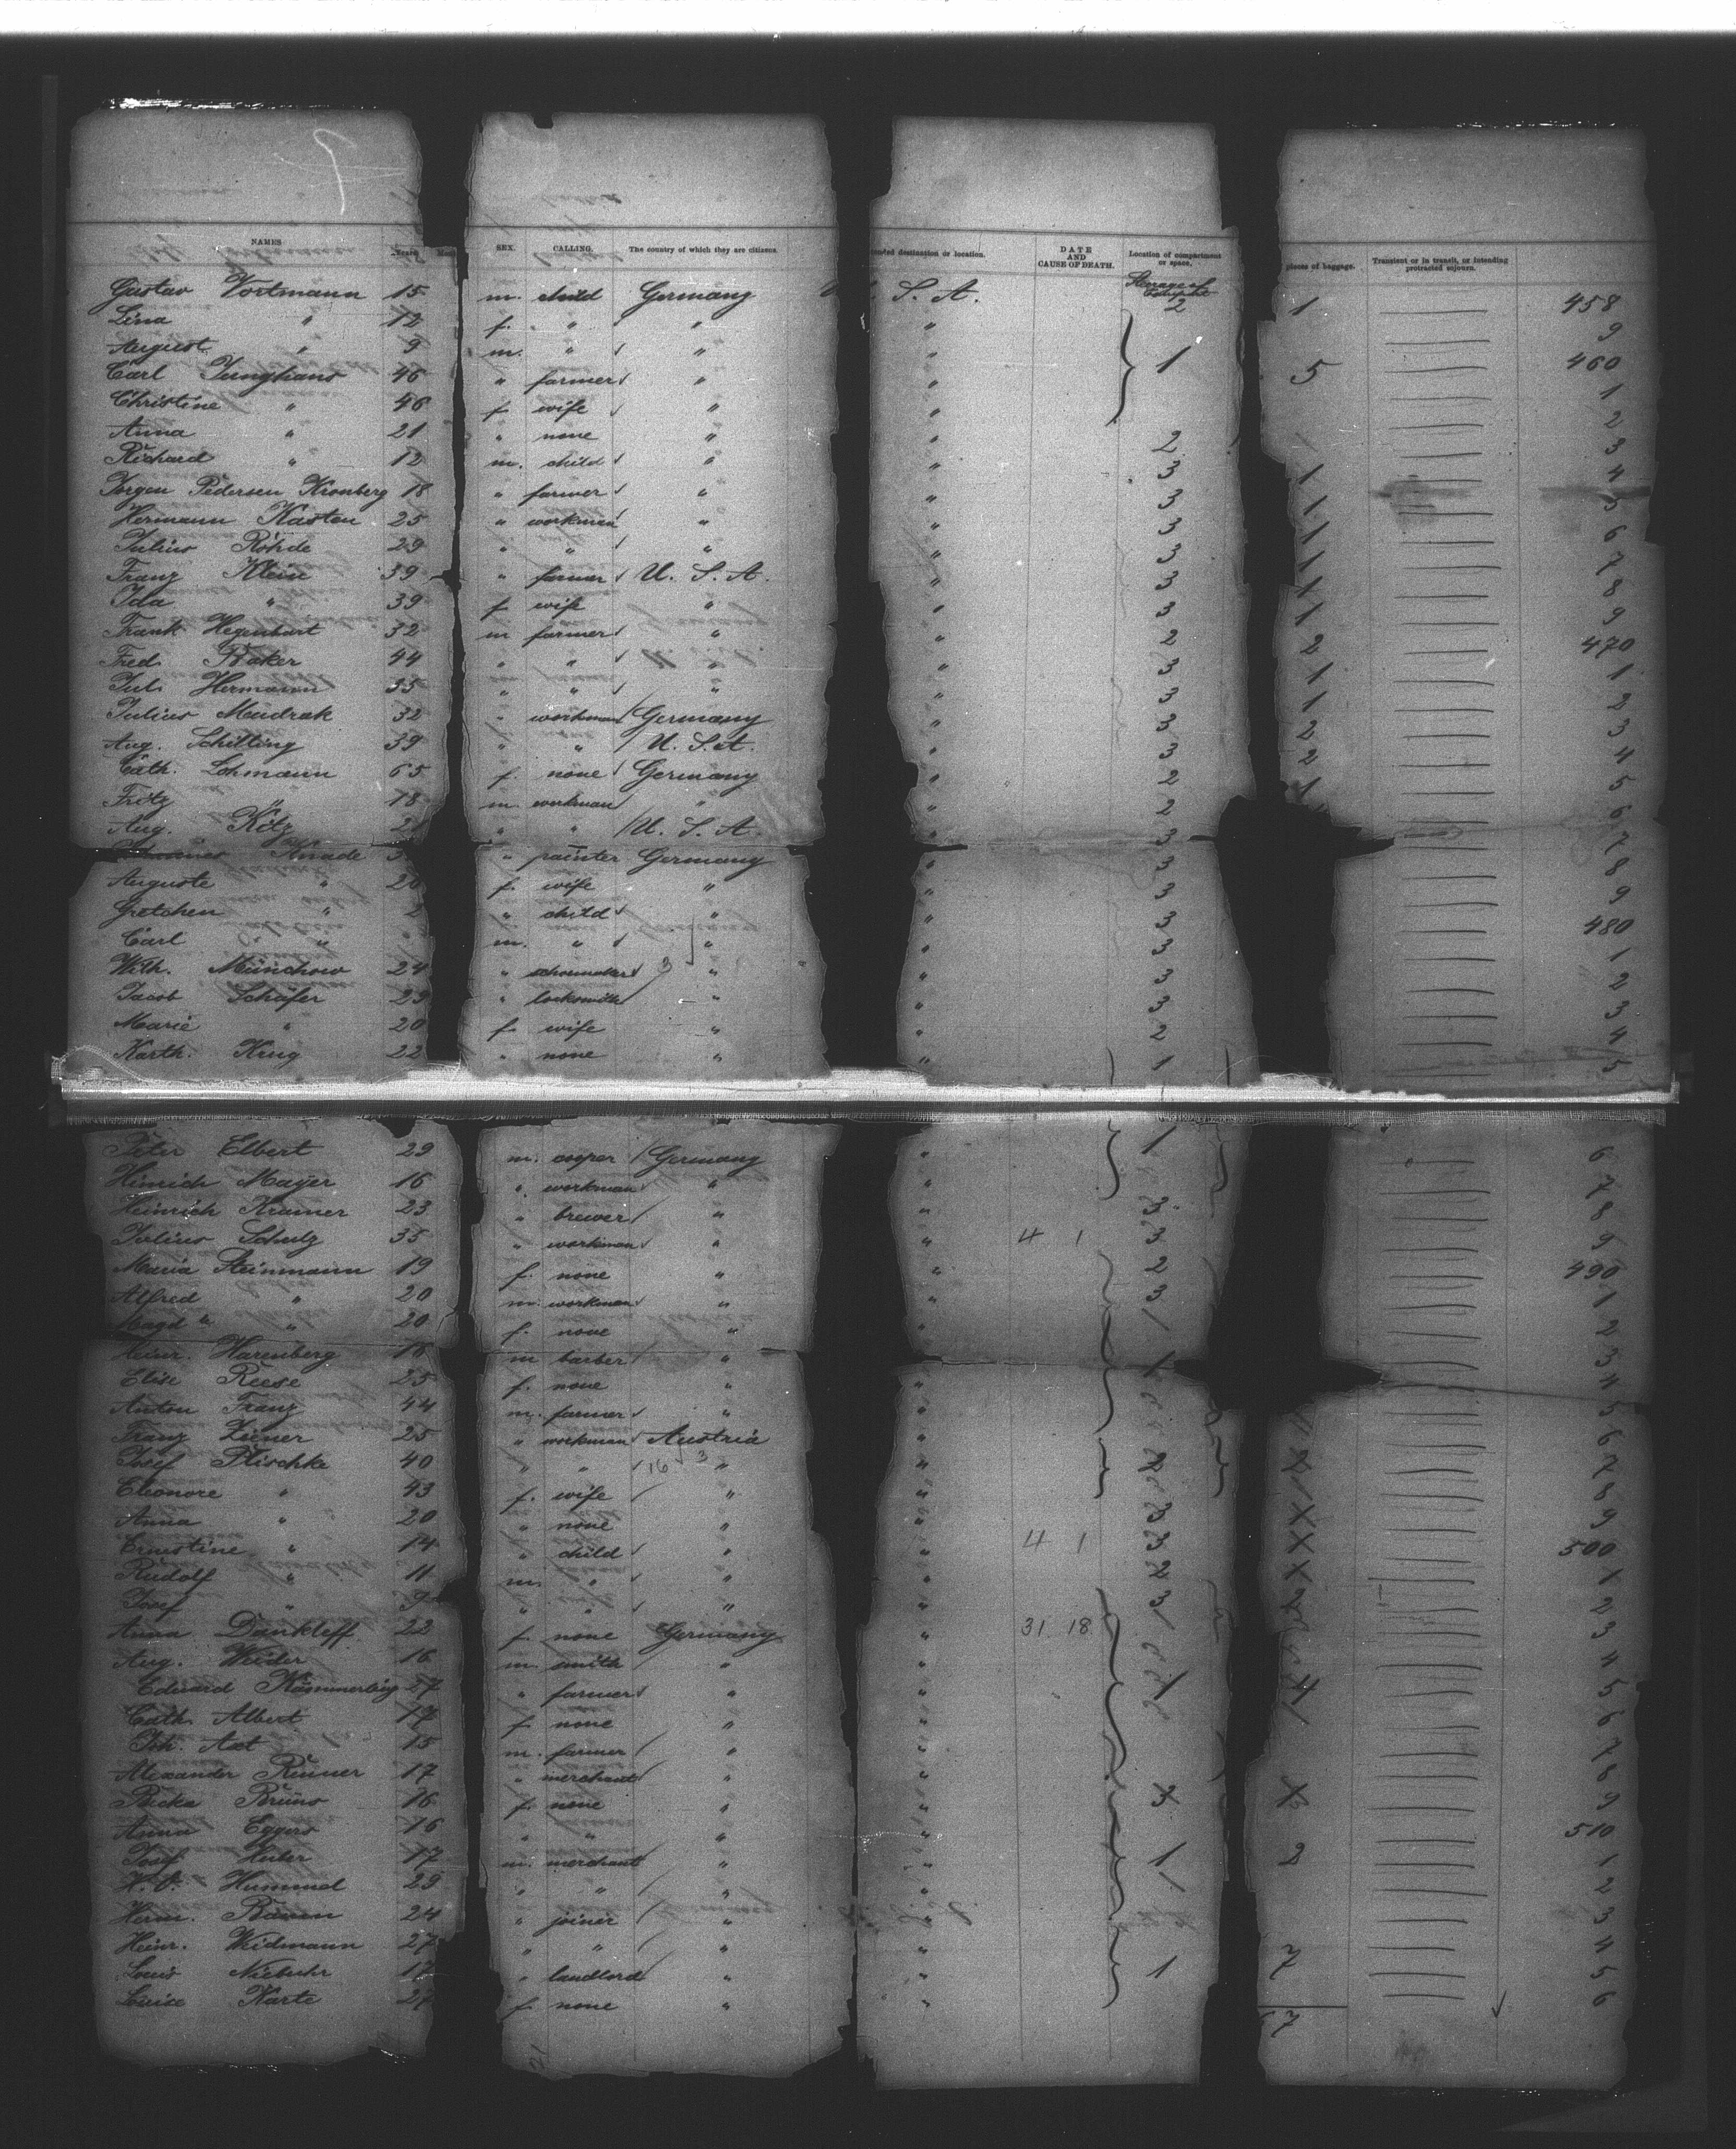 NAMES Years SEX. CALLING. The country of which they are citizens. destination or location. DATE AND CAUSE OF DEATH. Location of compartment or space. pieces of baggage. Transient or in transit, or intending protracted sojourn.
Gustav Vortmann 15 m. child Germany S. A. 2 1 458
Lina " 12 f. " " " 9
August " 9 m. " " " 1 460
Carl Junghans 46 " farmer " " 5 1
Christine " 46 f. wife " " 2
Anna " 21 " none " " 2 3
Richard " 12 m. child " " 3 4
Jörgen Pedersen Kronberg 18 " farmer " " 3 1 5
Hermann Kasten 25 " workman " " 3 1 6
Julius Rohde 29 " " " " 3 1 7
Franz Klein 39 " farmer U. S. A. " 3 1 8
Ida " 39 f. wife " " 3 9
Frank Hegenbart 32 m farmer " " 2 1 470
Fred. Baker 44 " " " " 3 2 1
Jul. Hermann 35 " " " " 3 1 2
Julius Mudrak 32 " workman Germany " 3 1 3
Aug. Schilling 39 " " U. S. A. " 3 2 4
Cath. Lohmann 65 f. none Germany " 2 2 5
Fritz " 18 m. workman " " 2 1 6
Aug. Kitz " " U. S. A. " 3 7
Knade " painter Germany " 3 8
Auguste " 20 f. wife " " 3 9
Gretchen " 2 " child " " 3 480
Carl " m. " " " 3 1
Wilh. Münchow 24 " shoemaker 3 " " 3 2
Jacob Schäfer 23 " locksmith " " 3 3
Marie " 20 f. wife " " 2 4
Kath. Krug 22 " none " " 1 5
Peter Elbert 29 m. cooper Germany " 1 6
Hinrich Mayer 16 " workman " " 7
Heinrich Kramer 23 " brewer " " 3 8
Julius Schulz 35 " workman " " 4 1 3 9
Maria Steinmann 19 f. none " " 2 490
Alfred " 20 m. workman " " 3 1
Magd " " 20 f. none " " 2
Heinr. Harenberg 16 m barber " 1 3
Elise Reese 25 f. none " " 4
Anton Franz 44 m. farmer " " 5
Franz Zeiner 25 " workman Austria " 6
Josef Plischke 40 " " 16 3 " " 2 7
Eleonore " 43 f. wife " " 8
Anna " 20 " none " " 3 X 9
Ernestine " 14 " child " " 4 1 3 X 500
Rudolf " 11 m. " " " 2 X 1
Josef " 9 " " " " 3 2
Anna Dankleff 22 f. none Germany " 31 18 3
Aug. Weider 16 m. smith " " 4
Eduard Kammerling 27 " farmer " " 1 14 5
Cath. Albert 17 f. none " " 6
Joh. Axt 15 m. farmer " " 7
Alexander Renner 17 " merchant " " 8
Becka Bruns 16 f. none " " 3 X 9
Anna Eggers 16 " " " " 510
Josef Huber 17 m. merchant " " 1 2 1
Hummel 29 " " " " 2
Herm. Baum 24 " joiner " " 3
Heinr. Weidmann 27 " " " " 7 4
Louis Niebuhr 17 " landlord " " 1 5
Luise Karte 27 f. none " " 6
7